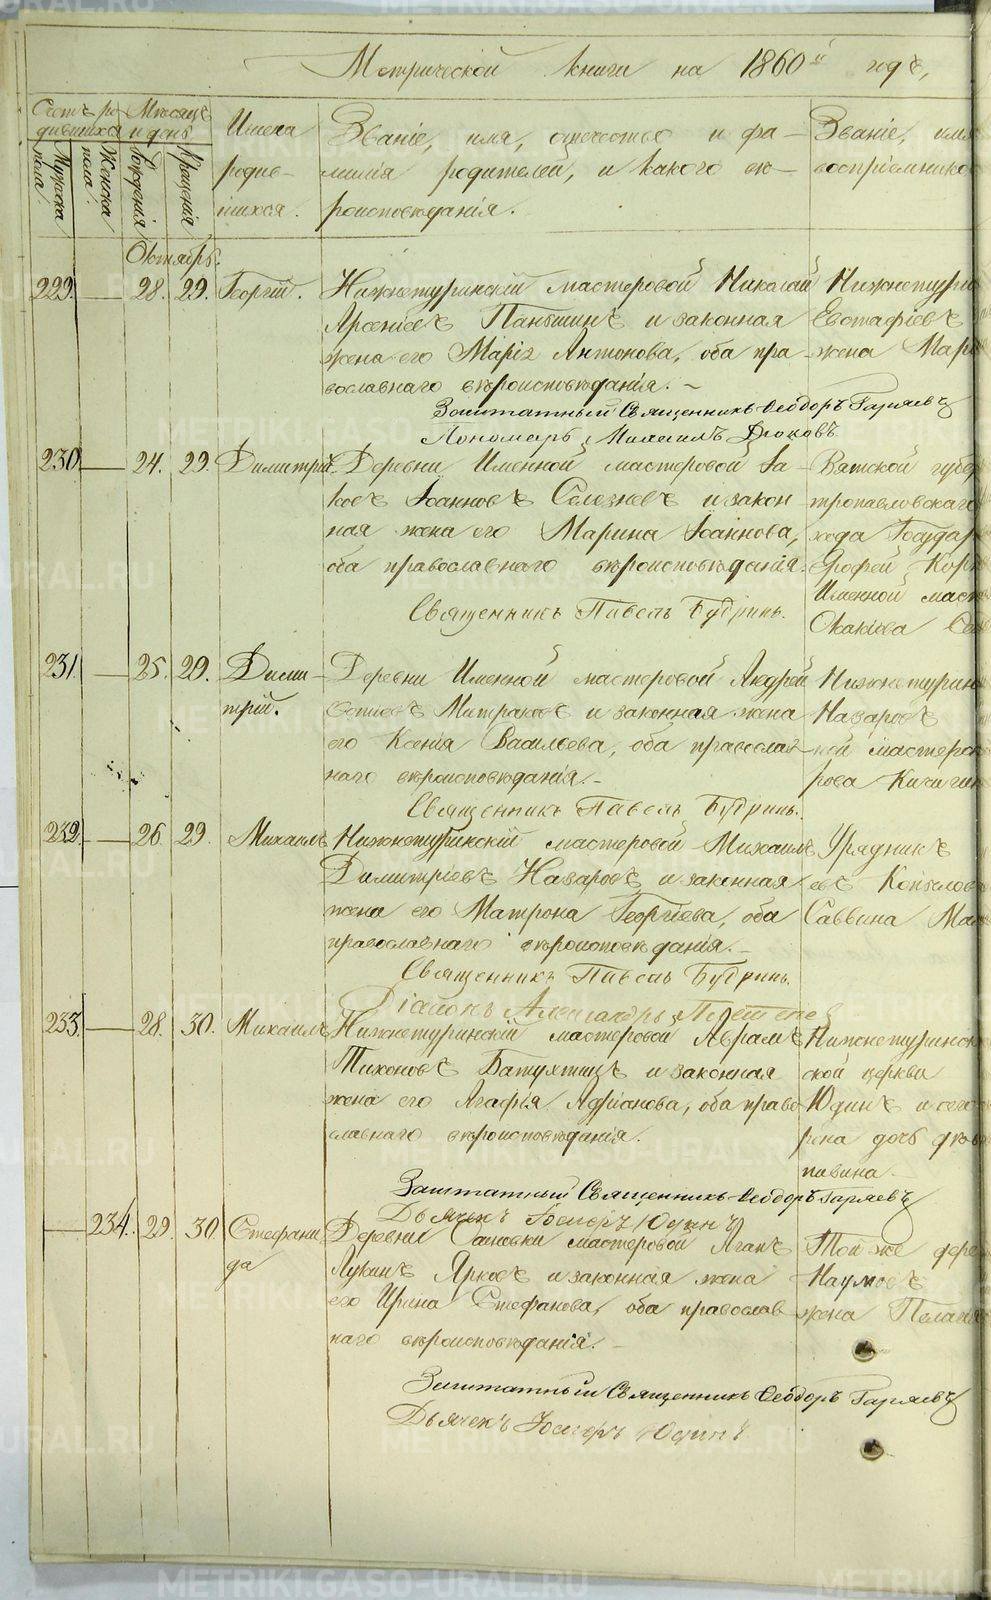 Метрической книги на 1860й годъ,
Счетъ ро-
дившихся
Мужеска
пола.
Женска
пола.
Мѣсяцъ
и день
Рожденія
Крещенія
Имена
родив-
шихся.
Званіе, имя, отчество и фа-
милія родителей, и какого вѣ-
роисповѣданія.
Званіе, имя
воспріемнико
Октябрь.
229. 28. 29. Георгій.
Нижнетуринскій мастеровой Николай
Арсеніевъ Паньшинъ и законная
жена его Марія Антонова, оба пра-
вославнаго вѣроисповѣданія.
Заштатный Священникъ Ѳеодоръ Гаряевъ
Пономарь
Нижнетури
Евстафіевъ
жена Мар
230 24. 29. Димитрій.
Деревни Именной мастеровой Іа-
ковъ Іоанновъ Селезневъ и закон
ная жена его Марина Іоаннова,
оба православнаго вѣроисповѣданія.
Священникъ Павелъ Будринъ.
Вятской губер
тропавловскаго
хода Государ
Ерофей Кор
Именной маст
Акакіева
231. 25. 29. Дими-
трій.
Деревни Именной мастеровой Андрей
Митраковъ и законная жена
его Ксенія Васильева, оба православ-
наго вѣроисповѣданія.
Священникъ Павелъ Будринъ.
Нижнетурин
Назаровъ
ной мастеров
рова Кичигин
232. 26. 29. Михаилъ
Нижнетуринскій мастеровой Михаилъ
Димитріевъ Назаровъ и законная
жена его Матрона Георгіева, оба
православнаго вѣроисповѣданія.
Священникъ Павелъ Будринъ.
Діаконъ Александръ
Урядникъ
евъ Копылов
Саввина Ма
233. 28. 30. Михаилъ
Нижнетуринскій мастеровой Аврамъ
Тихоновъ и законная
жена его Агафія Адріанова, оба право
славнаго вѣроисповѣданія.
Заштатный Священникъ Ѳеодоръ Гаряевъ
Дьячекъ Іосифъ Юдинъ
Нижнетуринск
ской церкви
Юдинъ и сего
рена дочь дѣв
павина.
234. 29. 30. Стефани
да
Деревни мастеровой Агапъ
Лукинъ Ярковъ и законная жена
его Ирина Стефанова, оба православ
наго вѣроисповѣданія.
Заштатный Священникъ Ѳеодоръ Гаряевъ
Дьячекъ Іосифъ Юдинъ
Той же дере
Наумовъ
жена Пелагія
METRIKI.GASO-URAL.RU